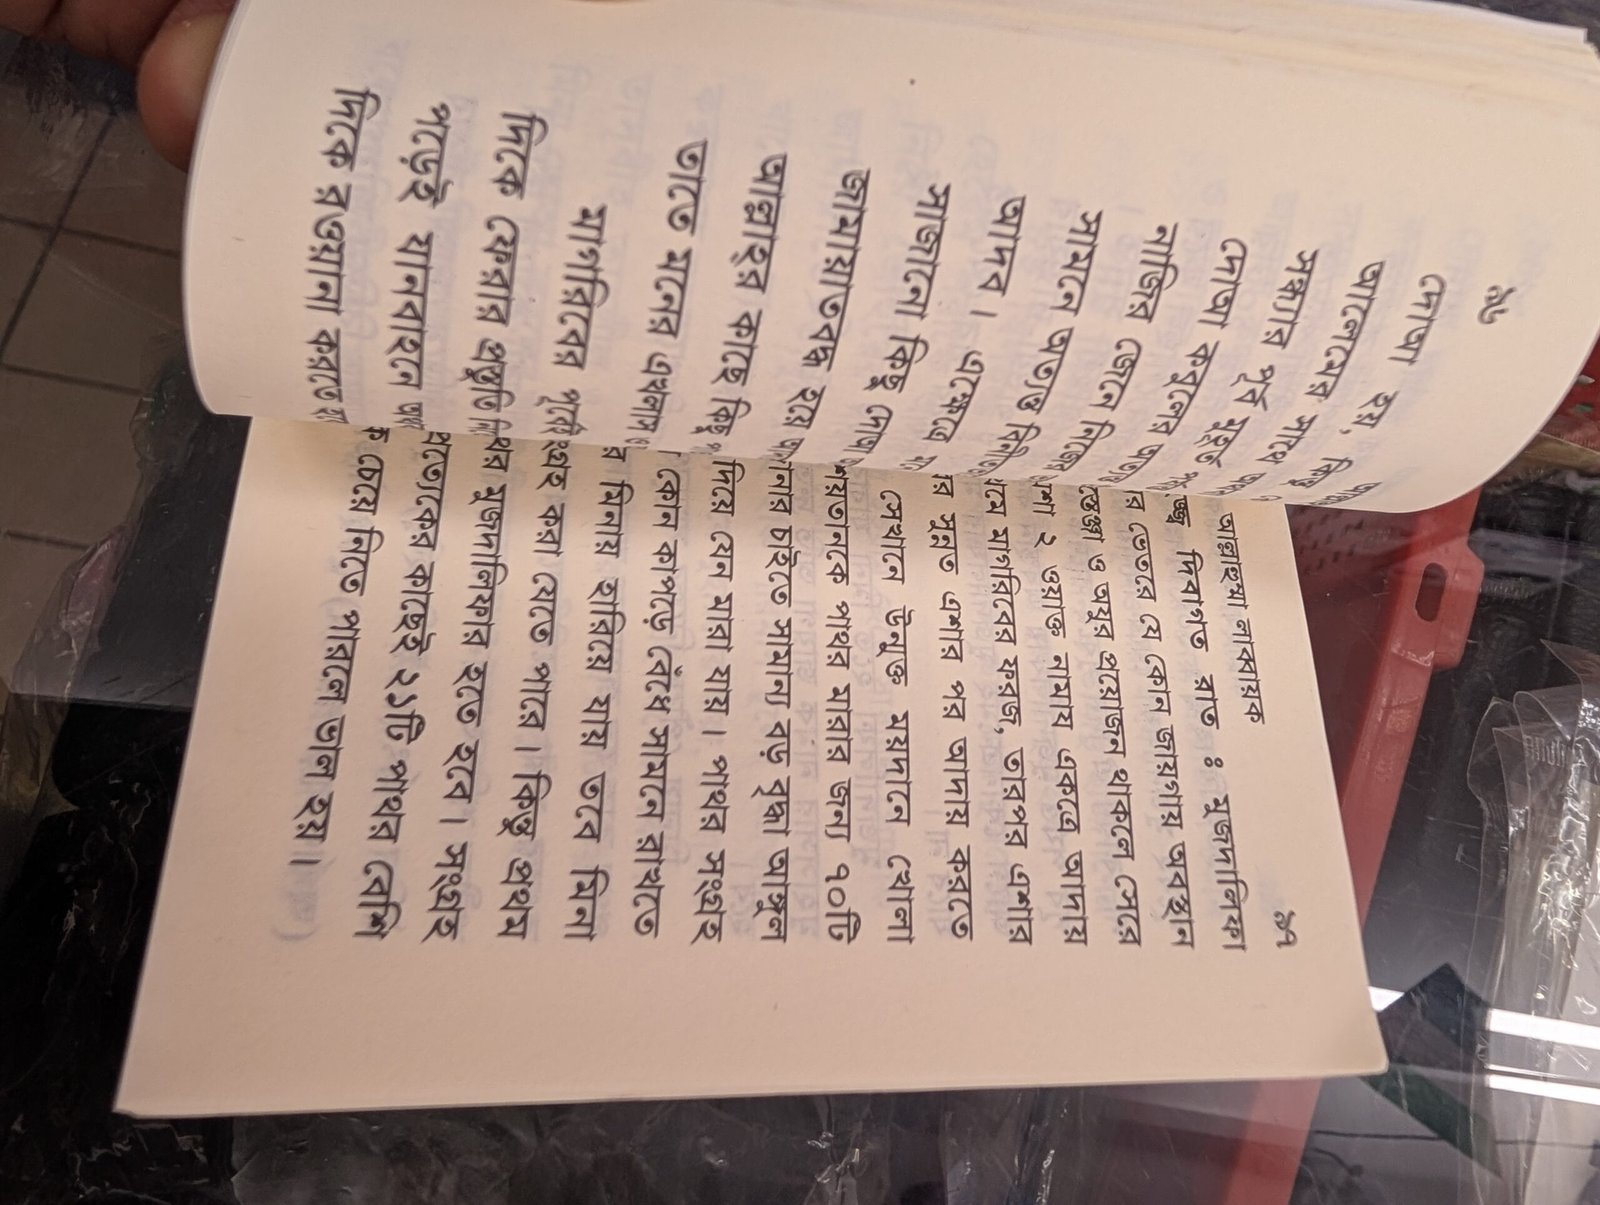 ৯৬
দোআ হয়, কিন্তু
আলেমের সাথে
সন্ধ্যার পূর্ব মুহূর্ত
দোআ কবুলের
নাজির জেনে নিজের
সামনে অত্যন্ত
আদব। এক্ষেত্রে
সাজানো কিছু দোআ
জামায়াতবদ্ধ হয়ে
আল্লাহর কাছে কিছু
তাতে মনের এখলাস
মাগরিবের পূর্বে
দিকে ফেরার প্রস্তুতি
পড়েই যানবাহনে
দিকে রওয়ানা করতে
৯৭
আল্লাহুমা লাকায়ক
দিবাগত রাত ঃ মুজদালিফা
ভেতরে যে কোন জায়গায় অবস্থান
ও অযুর প্রয়োজন থাকলে সেরে
২ ওয়াক্ত নামায একত্রে আদায়
মাগরিবের ফরজ, তারপর এশার
সুন্নত এশার পর আদায় করতে
সেখানে উন্মুক্ত ময়দানে খোলা
পাথর মারার জন্য ৭০টি
চাইতে সামান্য বড় বুদ্ধা আঙ্গুল
দিয়ে যেন মারা যায়। পাথর সংগ্রহ
কোন কাপড়ে বেঁধে সামনে রাখতে
মিনায় হারিয়ে যায় তবে মিনা
করা যেতে পারে। কিন্তু প্রথম
মুজদালিফার হতে হবে। সংগ্রহ
প্রত্যেকের কাছেই ২১টি পাথর বেশি
চেয়ে নিতে পারলে ভাল হয়।